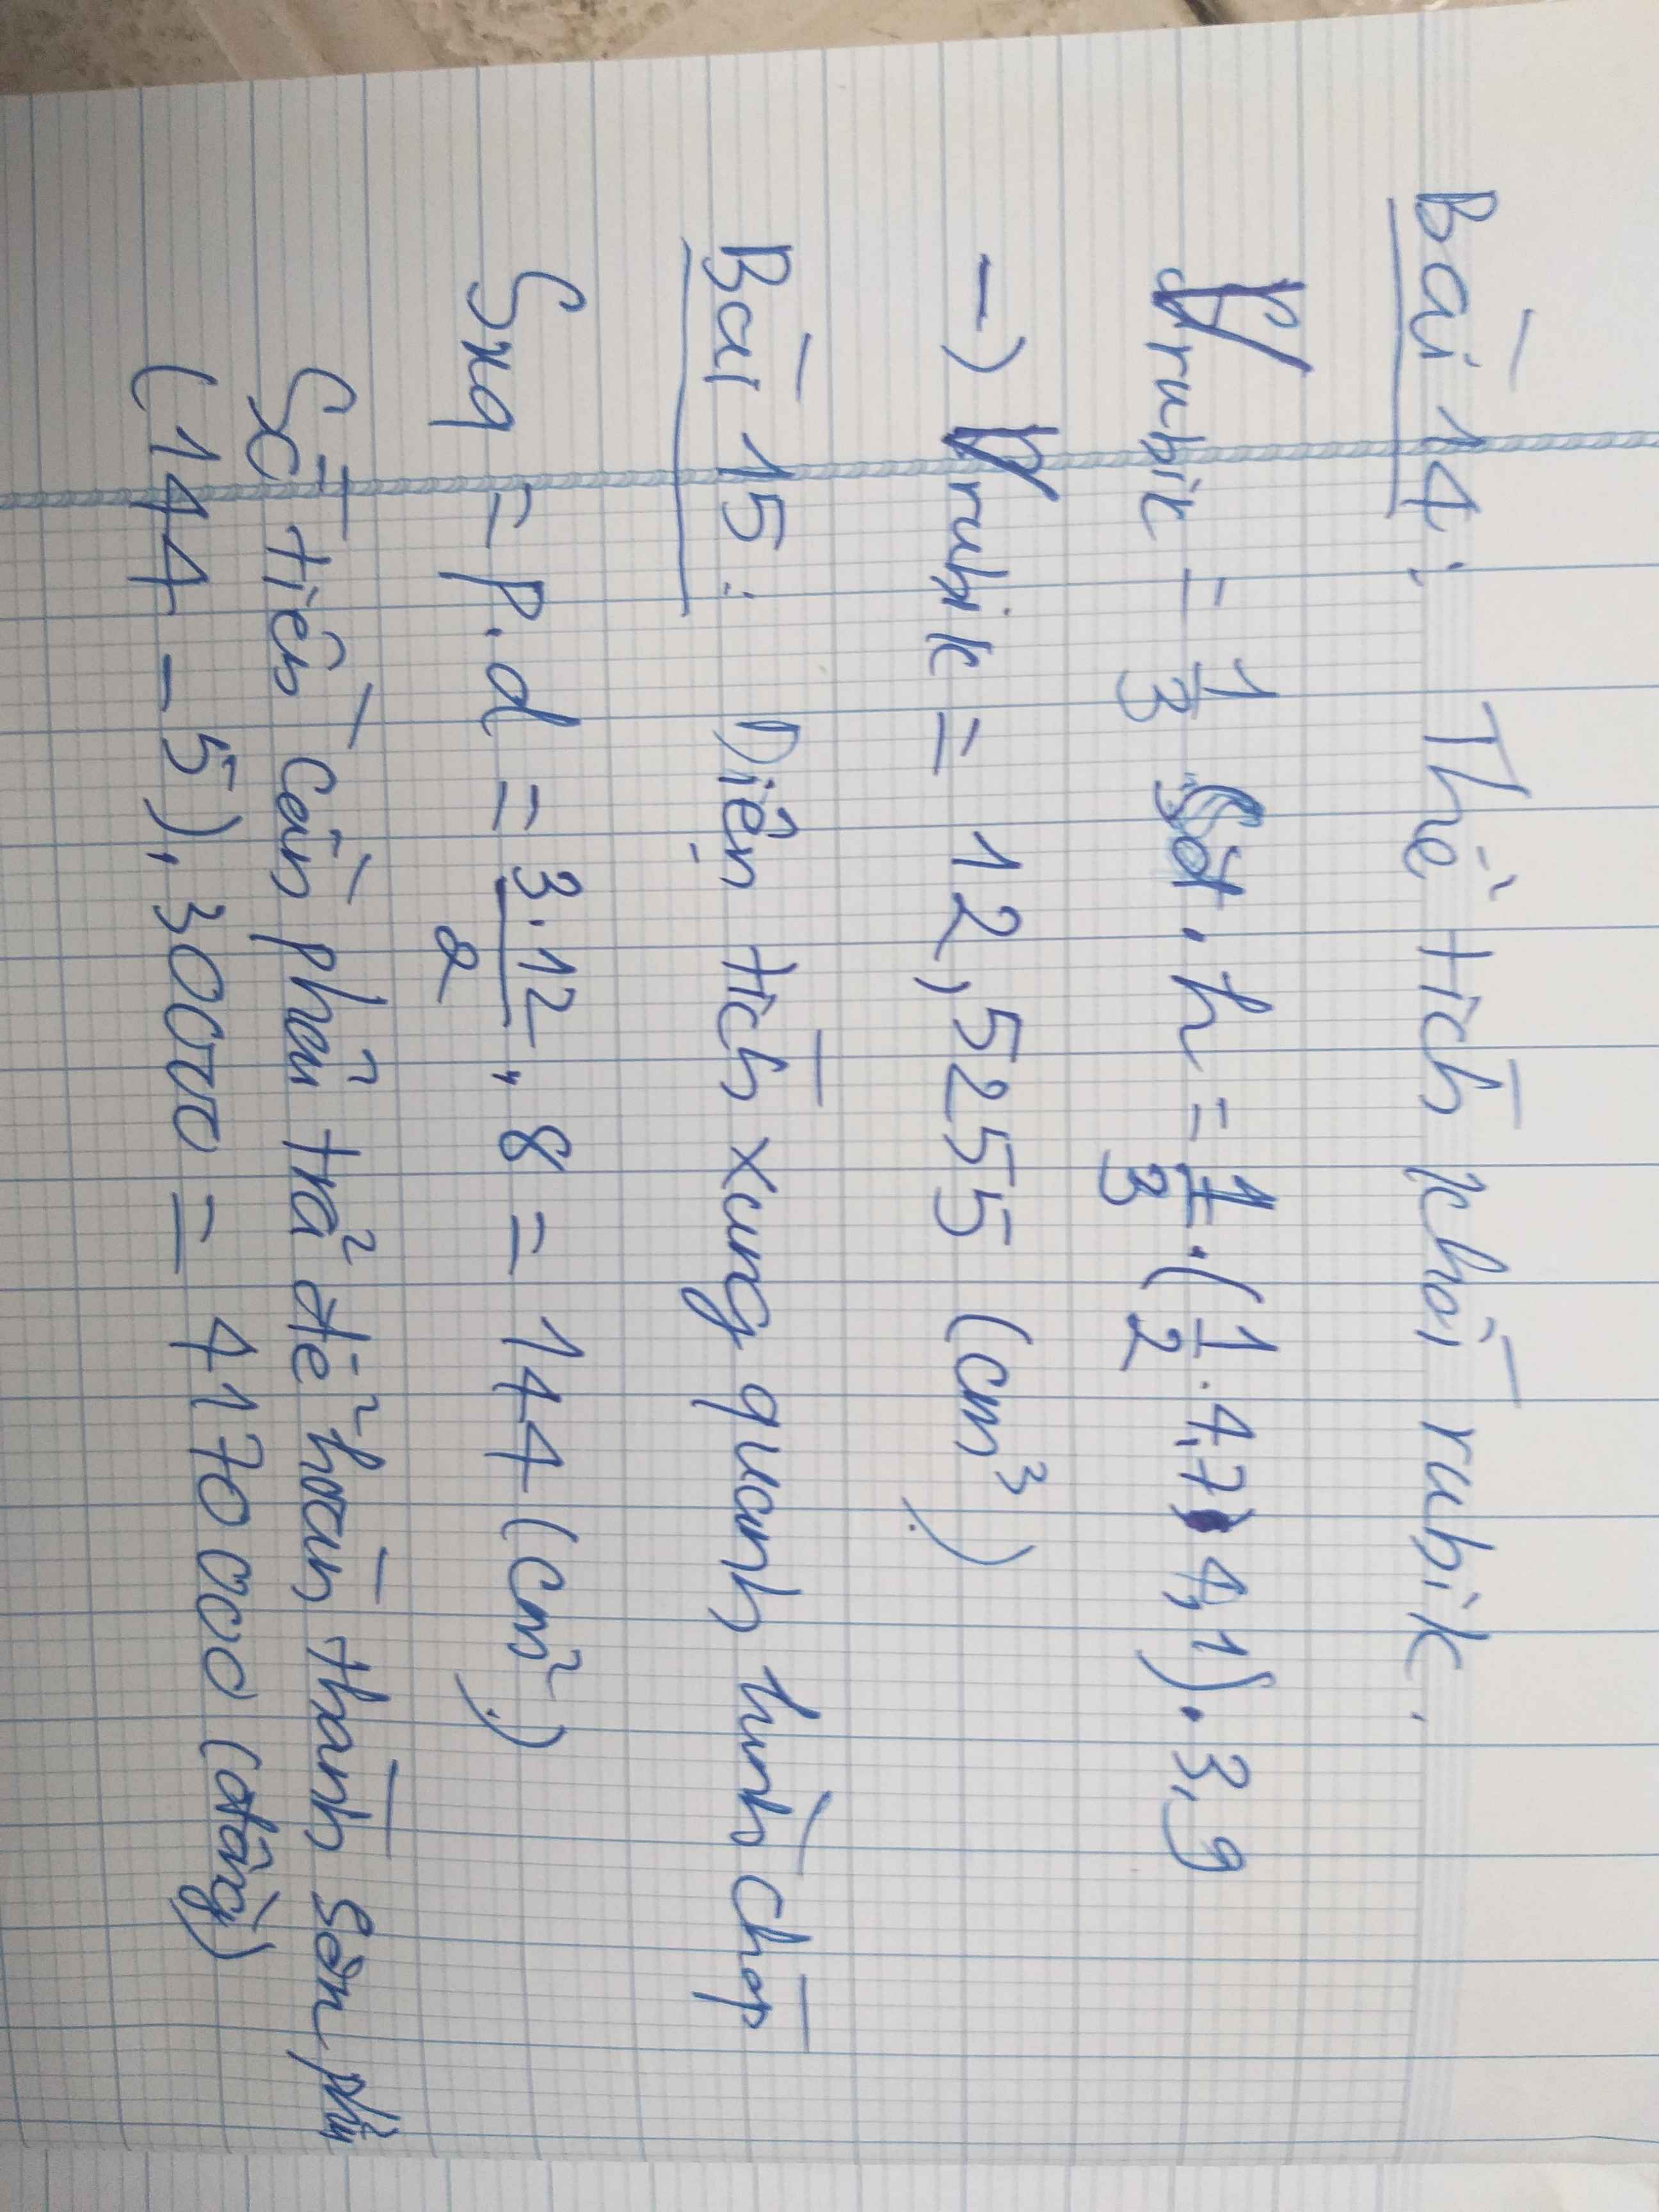 Bài 14: Thể tích khối rubik.
Vrubik = 1/3 Sđ . h = 1/3 . (1/2 . 4,7 . 4,1) . 3,9
→ Vrubik = 12,5255 (cm³)
Bài 15: Diện tích xung quanh hình chóp
Sxq = p.d = 3.12/2 . 8 = 144 (cm²)
Số tiền cần phải trả để hoàn thành sơn phủ
(144 - 5) . 30000 = 4170 000 (đồng)